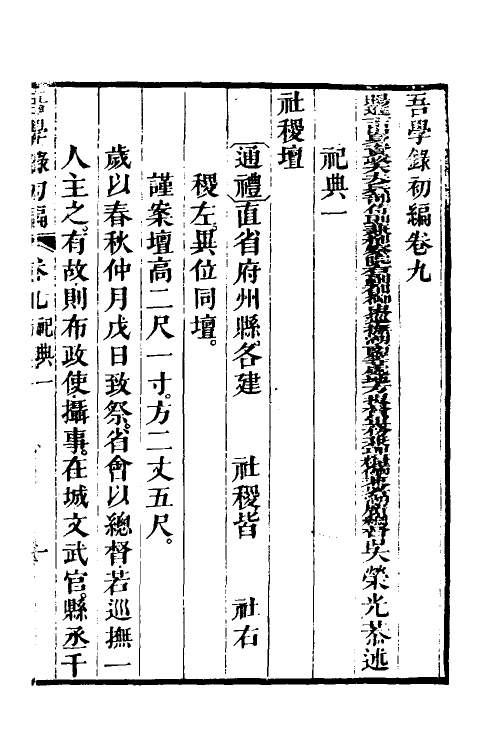 吾學錄初編卷九
吳榮光恭述
祀典一
社稷壇
通禮直省府州縣各建　社稷皆　社右
稷左異位同壇。
謹案壇高二尺一寸方二丈五尺。
歲以春秋仲月戊日致祭省會以總督若巡撫一
人主之有故則布政使攝事在城文武官縣丞千
吾學錄初編　卷九祀典一　一